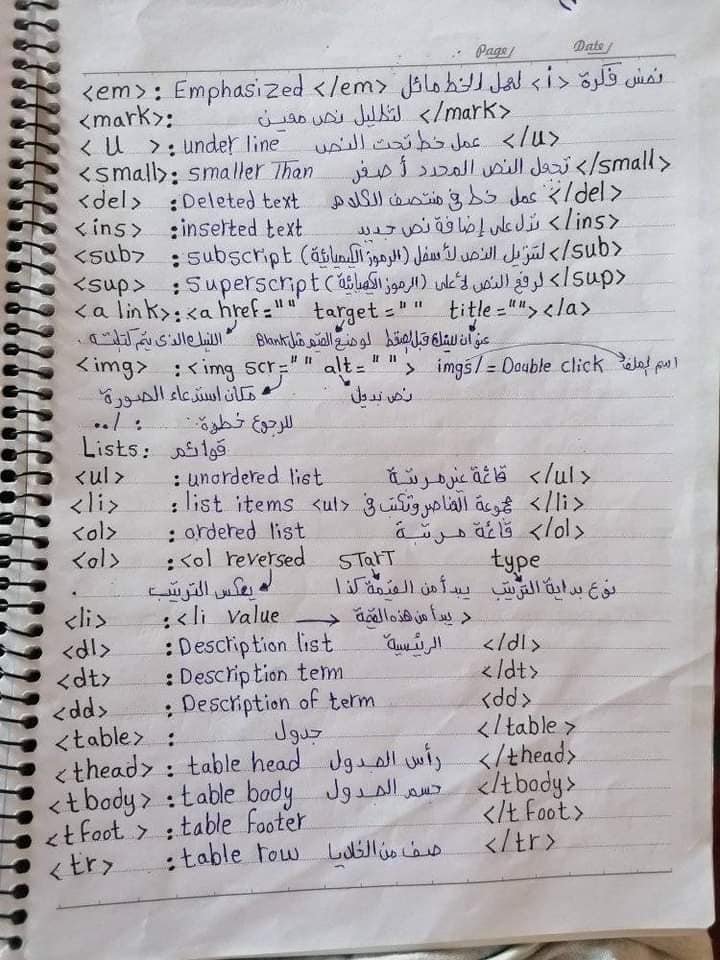 Page/ Date/
<em>: Emphasized </em> نفس فكرة <i> لعمل الخط مائل
<mark>: لتظليل نص معين </mark>
< U >: under line عمل خط تحت النص </u>
<small>: smaller Than تحول النص المحدد أصغر </small>
<del> : Deleted text عمل خط في منتصف الكلام </del>
<ins> : inserted text تدل على إضافة نص جديد </ins>
<sub> : subscript (الرموز الكيميائية) لتنزيل النص لأسفل </sub>
<sup> : Superscript (الرموز الكيميائية) لرفع النص لأعلى </sup>
<a link>: <a href="" target="" title=""></a>
اللينك الذى يتم كتابته لو وضع القيم مثل Blank عنوان للينك قبل الضغط .
<img> : <img scr="" alt=""> imgs/ = Double click اسم الملف
مكان استدعاء الصورة نص بديل
../ : للرجوع خطوة
Lists: قوائم
<ul> : unordered list قائمة غير مرتبة </ul>
<li> : list items <ul> مجموعة العناصر وتكتب فى </li>
<ol> : ordered list قائمة مرتبة </ol>
<ol> : <ol reversed START type
يعكس الترتيب يبدأ من القيمة كذا نوع بداية الترتيب .
<li> : <li value → يبدأ من هذه القيمة >
<dl> : Description list الرئيسية </dl>
<dt> : Description term </dt>
<dd> : Description of term <dd>
<table> : جدول </table>
<thead> : table head رأس الجدول </thead>
<tbody> : table body جسم الجدول </tbody>
<tfoot > : table footer </tfoot>
<tr> : table row صف من الخلايا </tr>